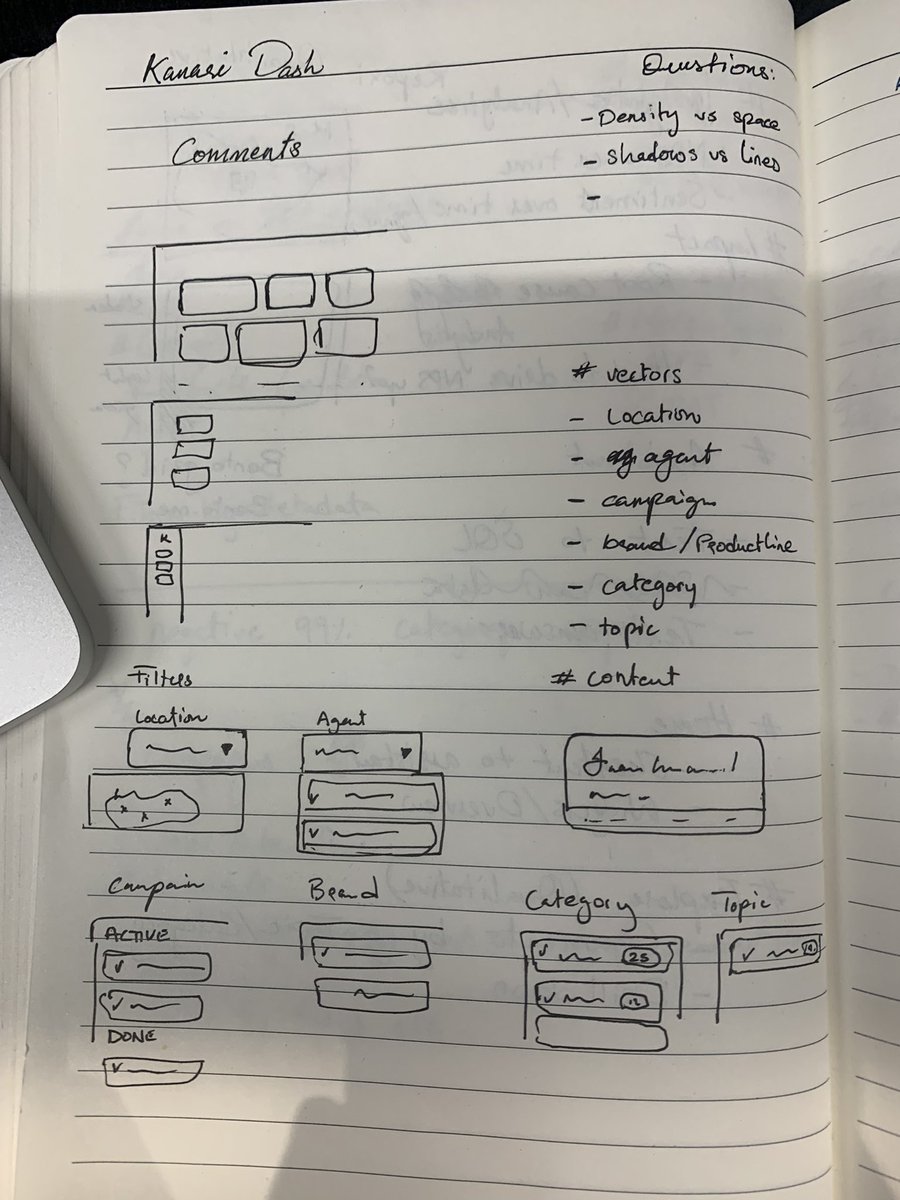 Kanari Dash
Comments
Questions:
- Density vs space
- shadows vs lines
-
# vectors
- Location
- agent
- campaign
- brand/Productline
- category
- topic
K
Filters
Location
Agent
# content
Campain
ACTIVE
DONE
Brand
Category
25
12
Topic